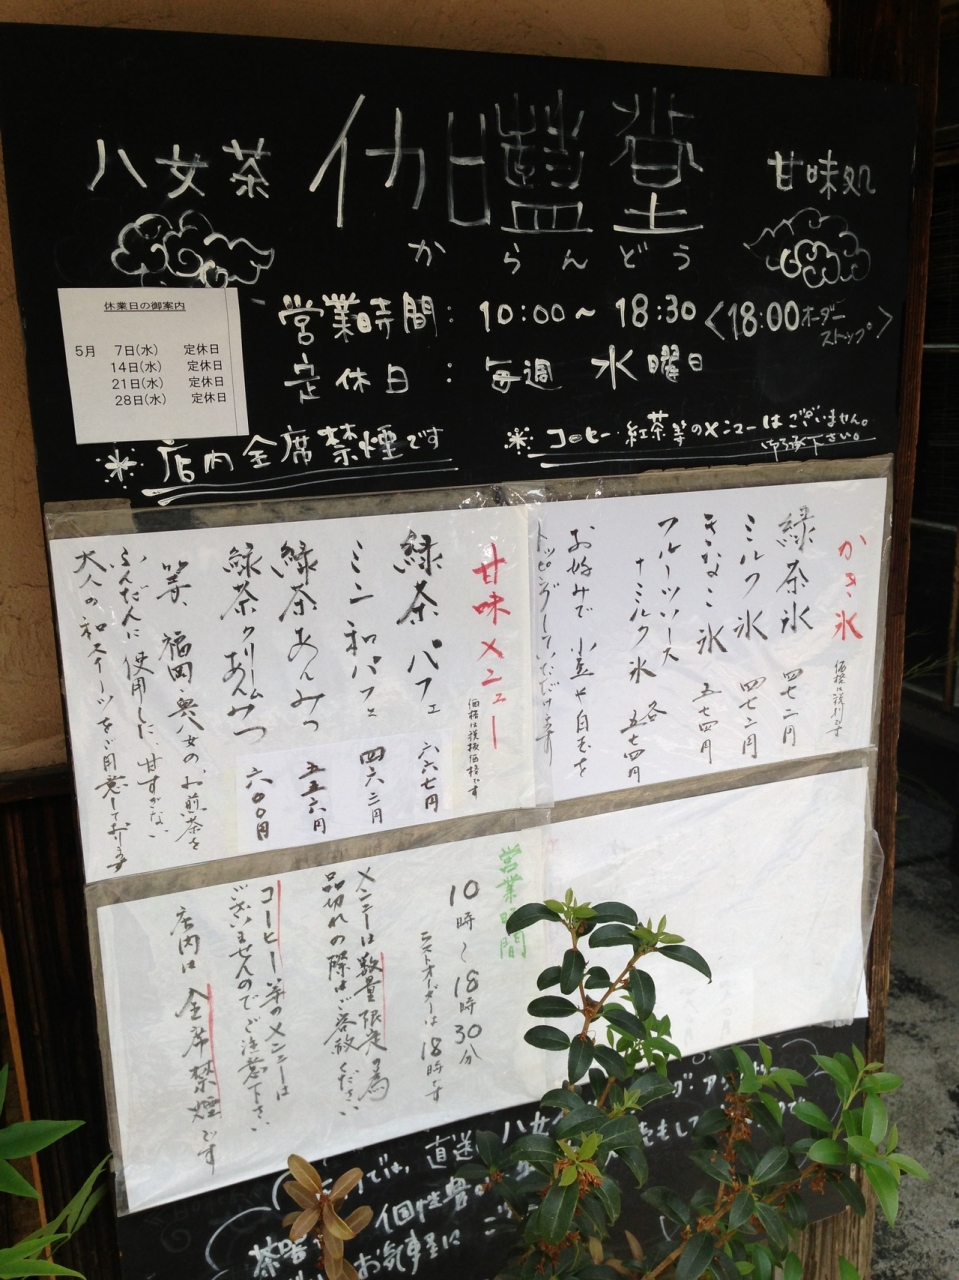 八女茶 伽藍堂 甘味処
からんどう
営業時間: 10:00~18:30 <18:00オーダーストップ>
定休日: 毎週 水曜日
休業日の御案内
5月 7日(水) 定休日
14日(水) 定休日
21日(水) 定休日
28日(水) 定休日
※店内全席禁煙です
※コーヒー・紅茶等のメニューはございません。
御了承下さい。
かき氷
価格は税別です
緑茶氷 四七二円
ミルク氷 四七二円
きなこ氷 五七四円
フルーツソース
+ミルク氷 各五七四円
お好みで小豆や白玉を
トッピングしていただけます
甘味メニュー
価格は税抜価格です
緑茶パフェ 六六七円
ミニ和パフェ 四六三円
緑茶あんみつ 五五六円
緑茶クリームあんみつ 六〇〇円
等、福岡・奥八女のお煎茶を
ふんだんに使用した、甘すぎない
大人の和スイーツをご用意しております
営業時間
10時~18時30分
ラストオーダーは18時です
メニューは数量限定の為
品切れの際はご容赦ください
コーヒー等のメニューは
ございませんのでご注意下さい
店内は全席禁煙です
では、直送
八女
個性豊か
お気軽に